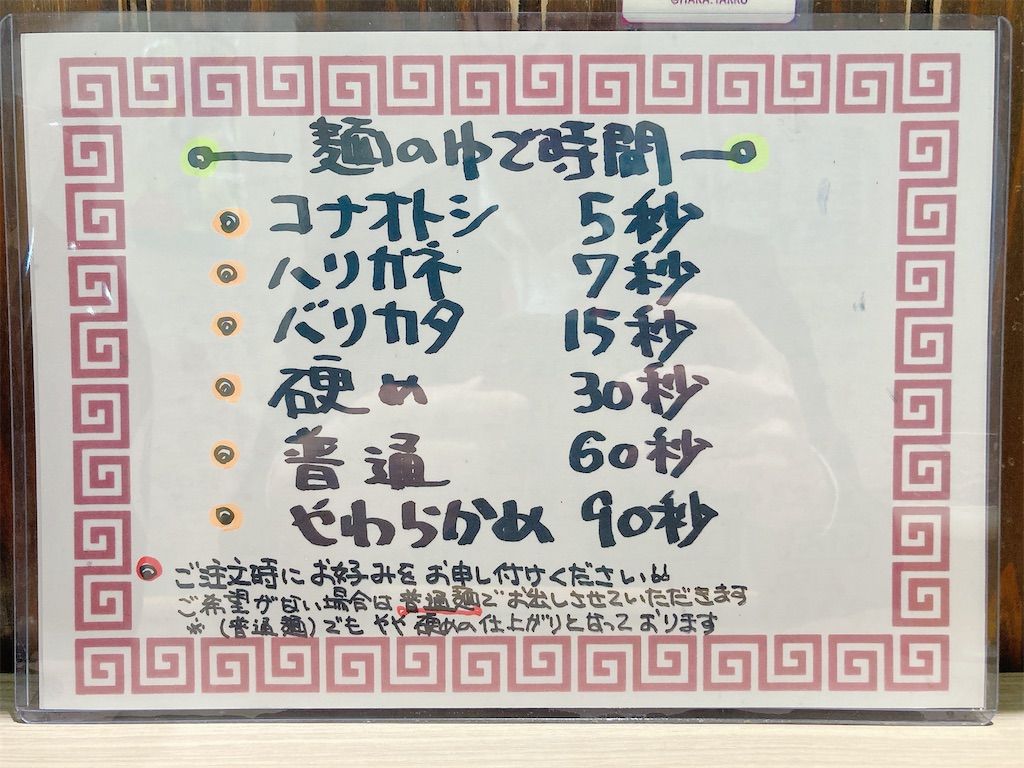 麺のゆで時間
コナオトシ 5秒
ハリガネ 7秒
バリカタ 15秒
硬め 30秒
普通 60秒
やわらかめ 90秒
ご注文時にお好みをお申し付けください。
ご希望がない場合は普通麺でお出しさせていただきます
※(普通麺)でもやや硬めの仕上がりとなっております